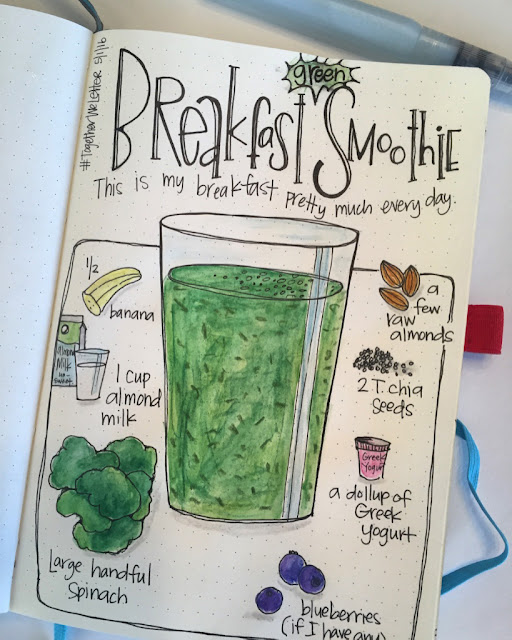 #TogetherWeLetter 5/1/16
green
BReakfast Smoothie
This is my breakfast pretty much every day.
1/2
banana
almond
Milk
1 cup
almond
milk
Large handful
Spinach
a
few
raw
almonds
2 T. chia
seeds
Greek
Yogurt
a dollup of
Greek
yogurt
blueberries
(if I have any)